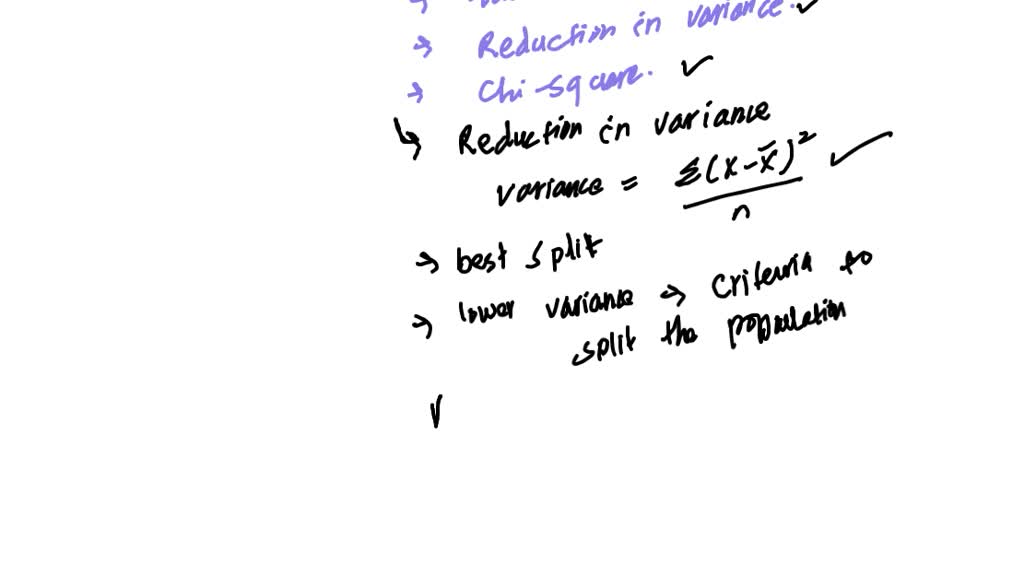 → Reduction in variance. ✓
→ Chi-square. ✓
↳ Reduction in variance
variance = Σ(x-x̄)² / n ✓
→ best split
→ lower variance → Criteria to
split the population
V